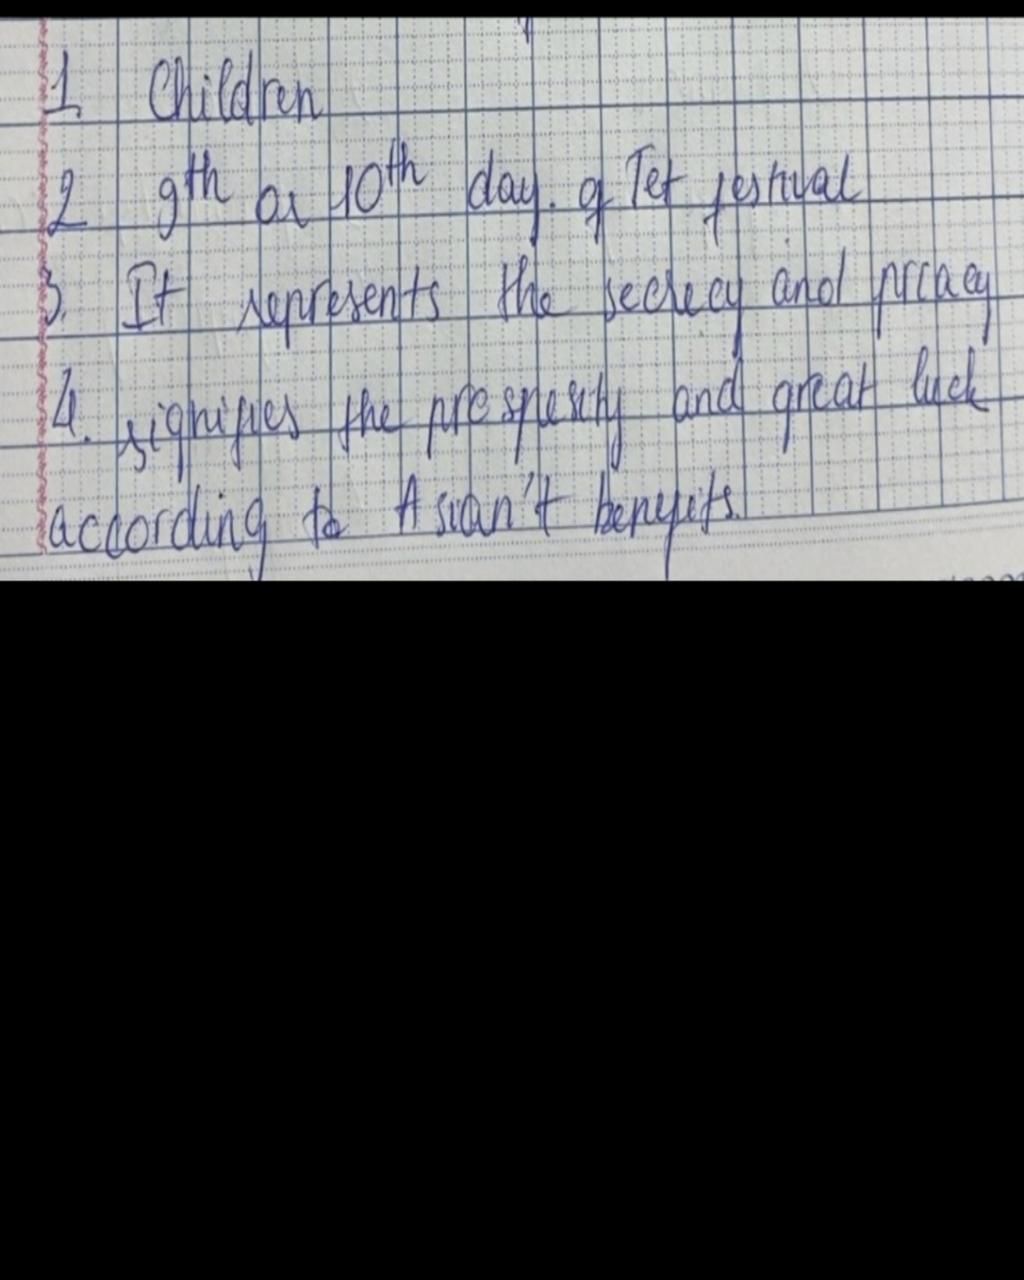 1. Children
2 9th or 10th day. of Tet festival
3. It represents the secrecy and
4. signifies the prosperity and great luck
according to Asian't benefits.